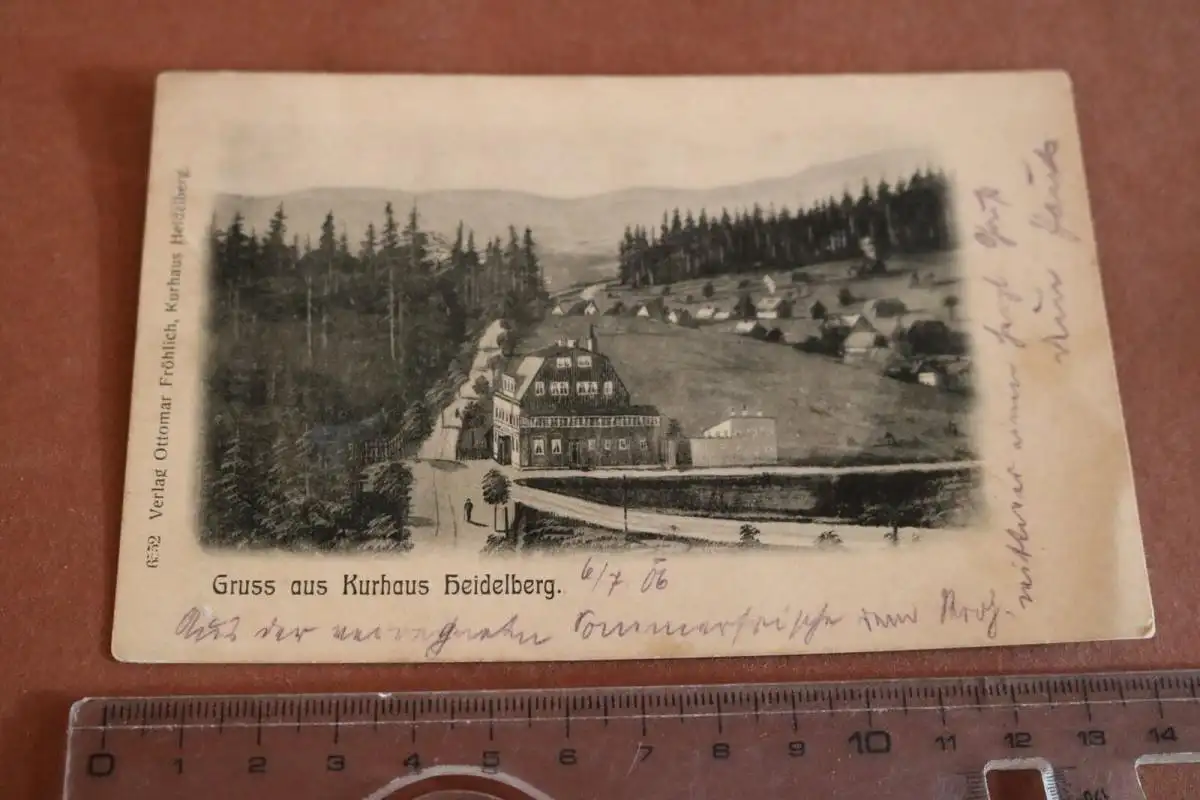 6552 Verlag Ottomar Fröhlich, Kurhaus Heidelberg.
Gruss aus Kurhaus Heidelberg.
6/7 06
Aus der verregneten Sommerfrische dem
Gruß
0 1 2 3 4 5 6 7 8 9 10 11 12 13 14